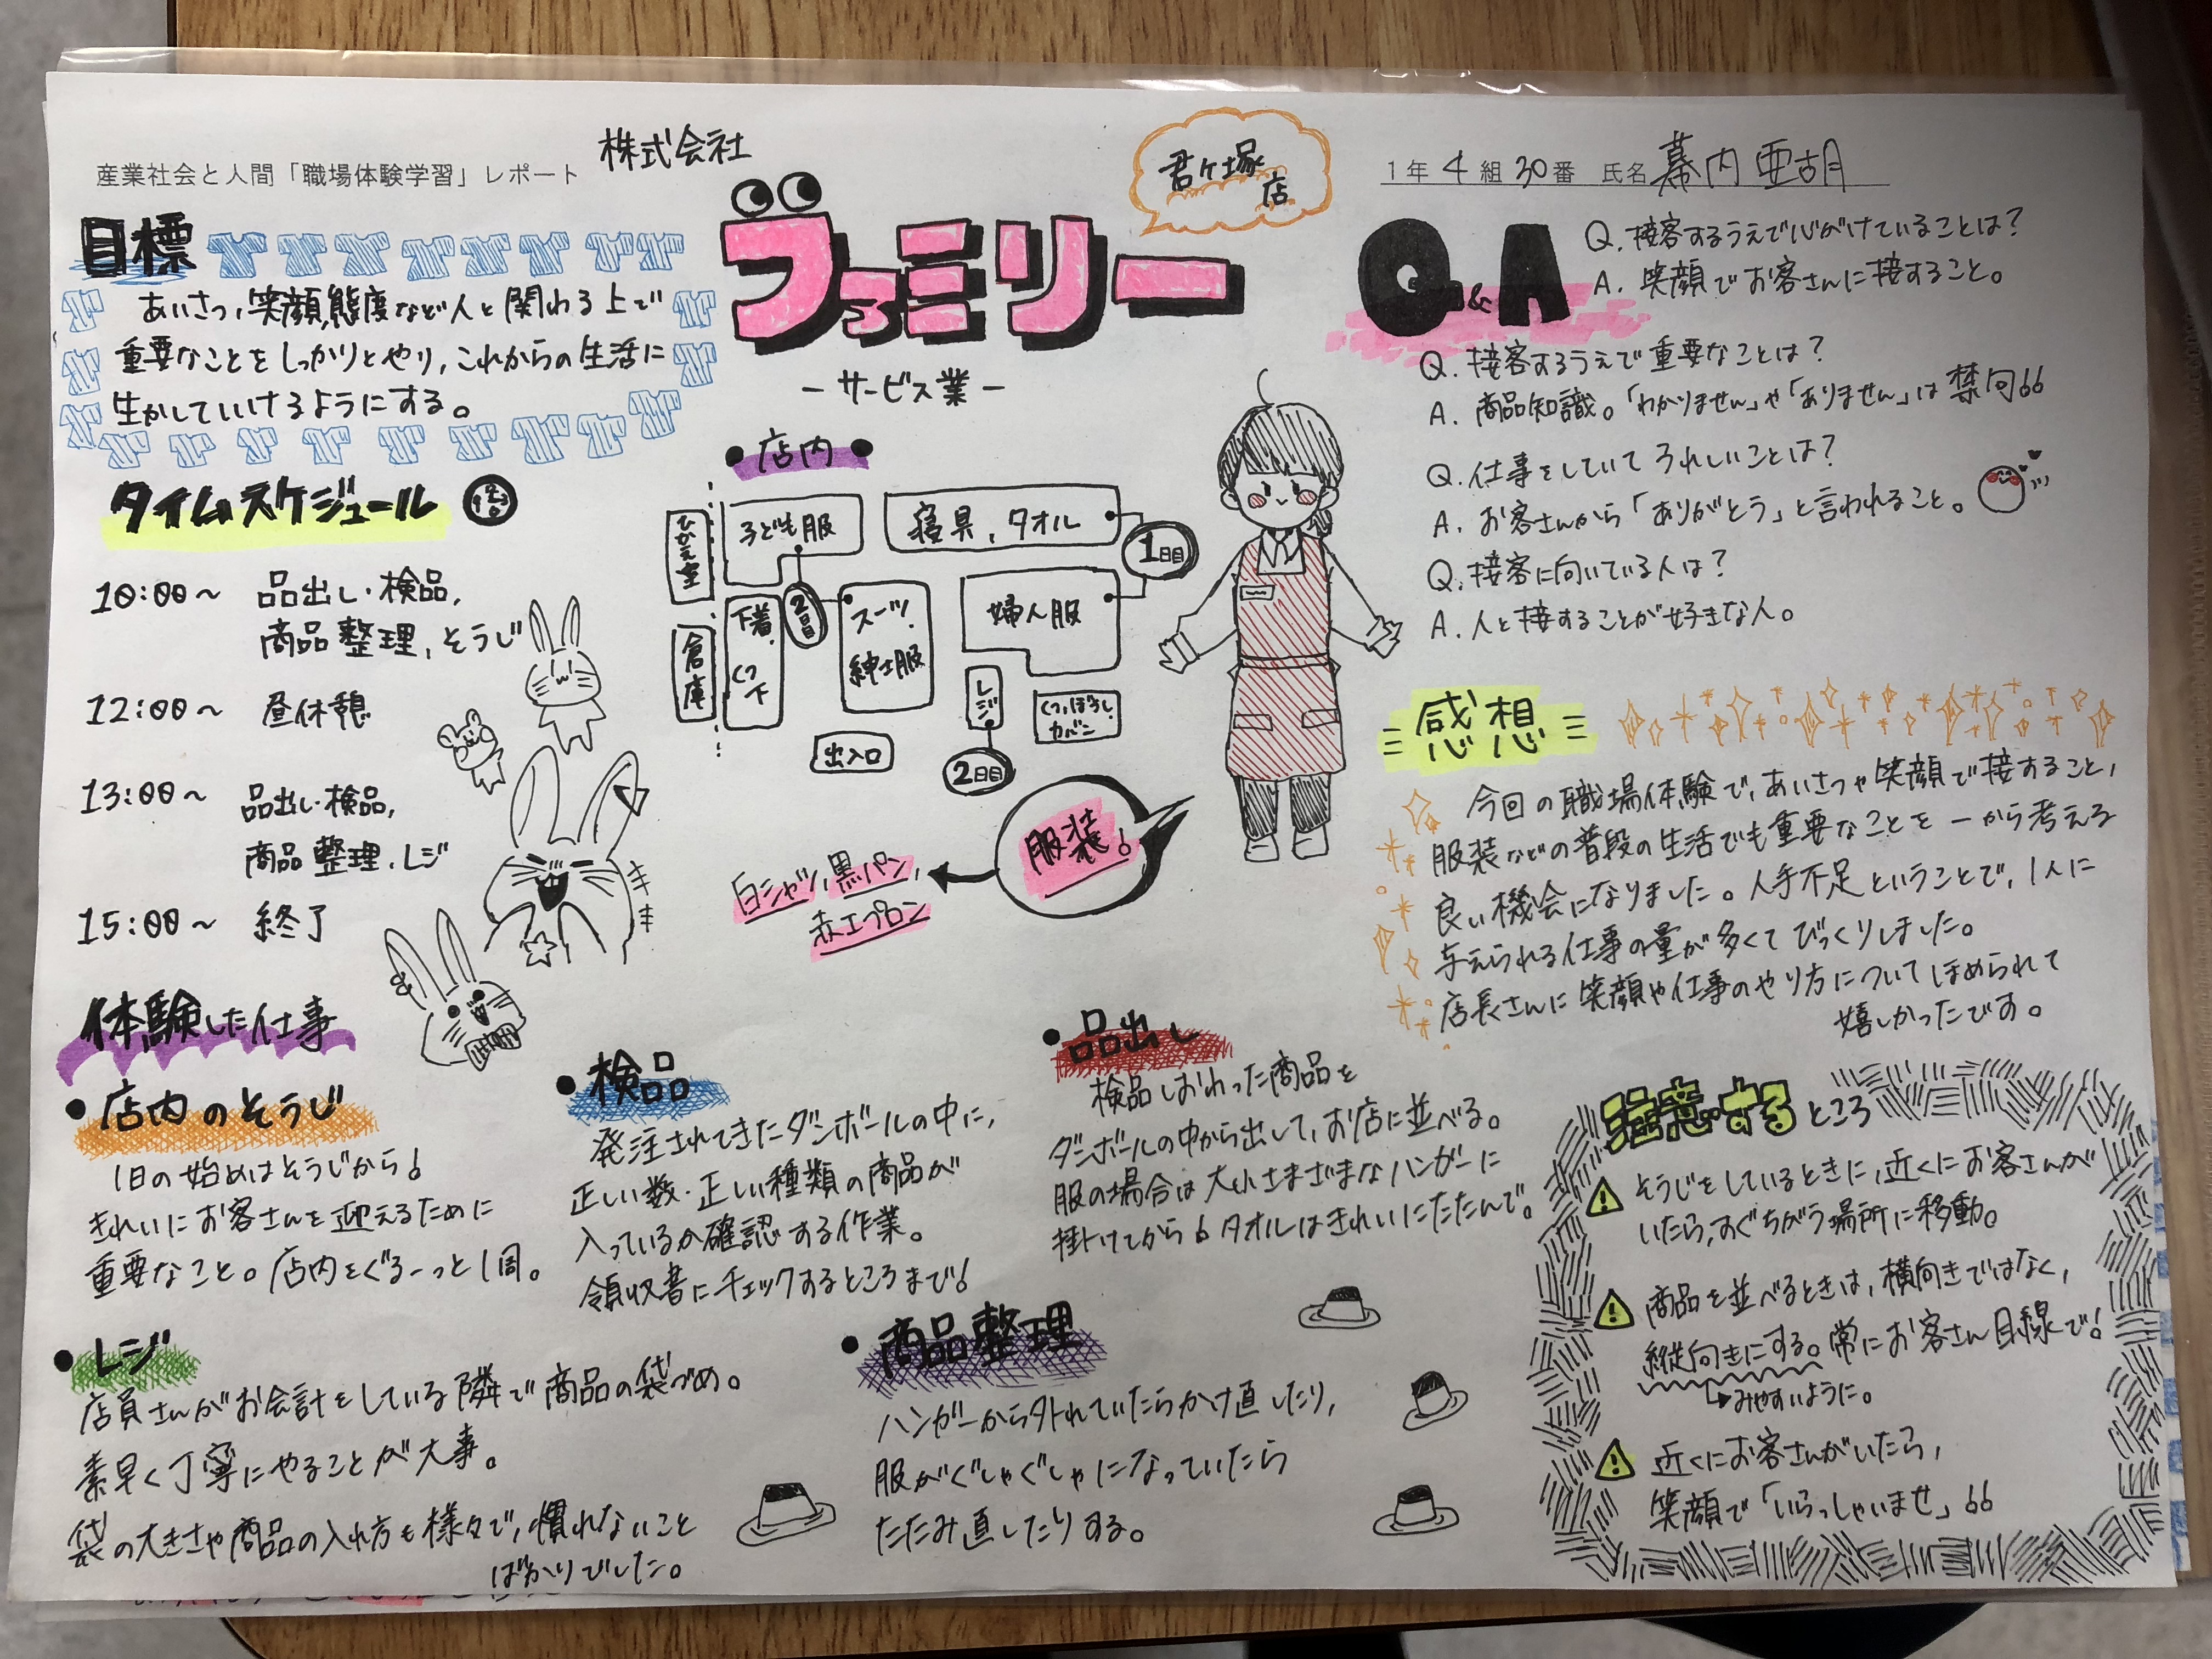 産業社会と人間「職場体験学習」レポート
株式会社
ファミリー
君ケ塚
店
ーサービス業ー
1年 4 組 30番 氏名 幕内 亜胡
目標
あいさつ、笑顔、態度など人と関わる上で
重要なことをしっかりとやり、これからの生活に
生かしていけるようにする。
タイムスケジュール
10:00～ 品出し・検品,
商品整理, そうじ
12:00～ 昼休憩
13:00～ 品出し・検品,
商品整理, レジ
15:00～ 終了
・店内・
ひかえ室
子ども服
寝具、タオル
1日目
倉庫
下着、くつ下
2日目
スーツ、
紳士服
婦人服
レジ
くつ、ぼうし、
カバン
出入口
2日目
服装!
白シャツ, 黒パン,
赤エプロン
Q&A
Q. 接客するうえで心がけていることは?
A. 笑顔でお客さんに接すること。
Q. 接客するうえで重要なことは?
A. 商品知識。「わかりません」や「ありません」は禁句!!
Q. 仕事をしていてうれしいことは?
A. お客さんから「ありがとう」と言われること。
Q. 接客に向いている人は?
A. 人と接することが好きな人。
感想
今回の職場体験で、あいさつや笑顔で接すること、
服装などの普段の生活でも重要なことを一から考える
良い機会になりました。人手不足ということで、1人に
与えられる仕事の量が多くてびっくりしました。
店長さんに笑顔や仕事のやり方についてほめられて
嬉しかったです。
体験した仕事
・店内のそうじ
1日の始めはそうじから!
きれいにお客さんを迎えるために
重要なこと。店内をぐるーっと1周。
・検品
発注されてきたダンボールの中に、
正しい数・正しい種類の商品が
入っているか確認する作業。
領収書にチェックするところまで!
・品出し
検品しおわった商品を
ダンボールの中から出して、お店に並べる。
服の場合は大小さまざまなハンガーに
掛けてから! タオルはきれいにたたんで。
・レジ
店員さんがお会計をしている隣で商品の袋づめ。
素早く丁寧にやることが大事。
袋の大きさや商品の入れ方も様々で、慣れないこと
ばかりでした。
・商品整理
ハンガーから外れていたらかけ直したり、
服がぐしゃぐしゃになっていたら
たたみ直したりする。
注意するところ
そうじをしているときに、近くにお客さんが
いたら、すぐちがう場所に移動。
商品を並べるときは、横向きではなく、
縦向きにする。常にお客さん目線で!
みやすいように。
近くにお客さんがいたら、
笑顔で「いらっしゃいませ」!!